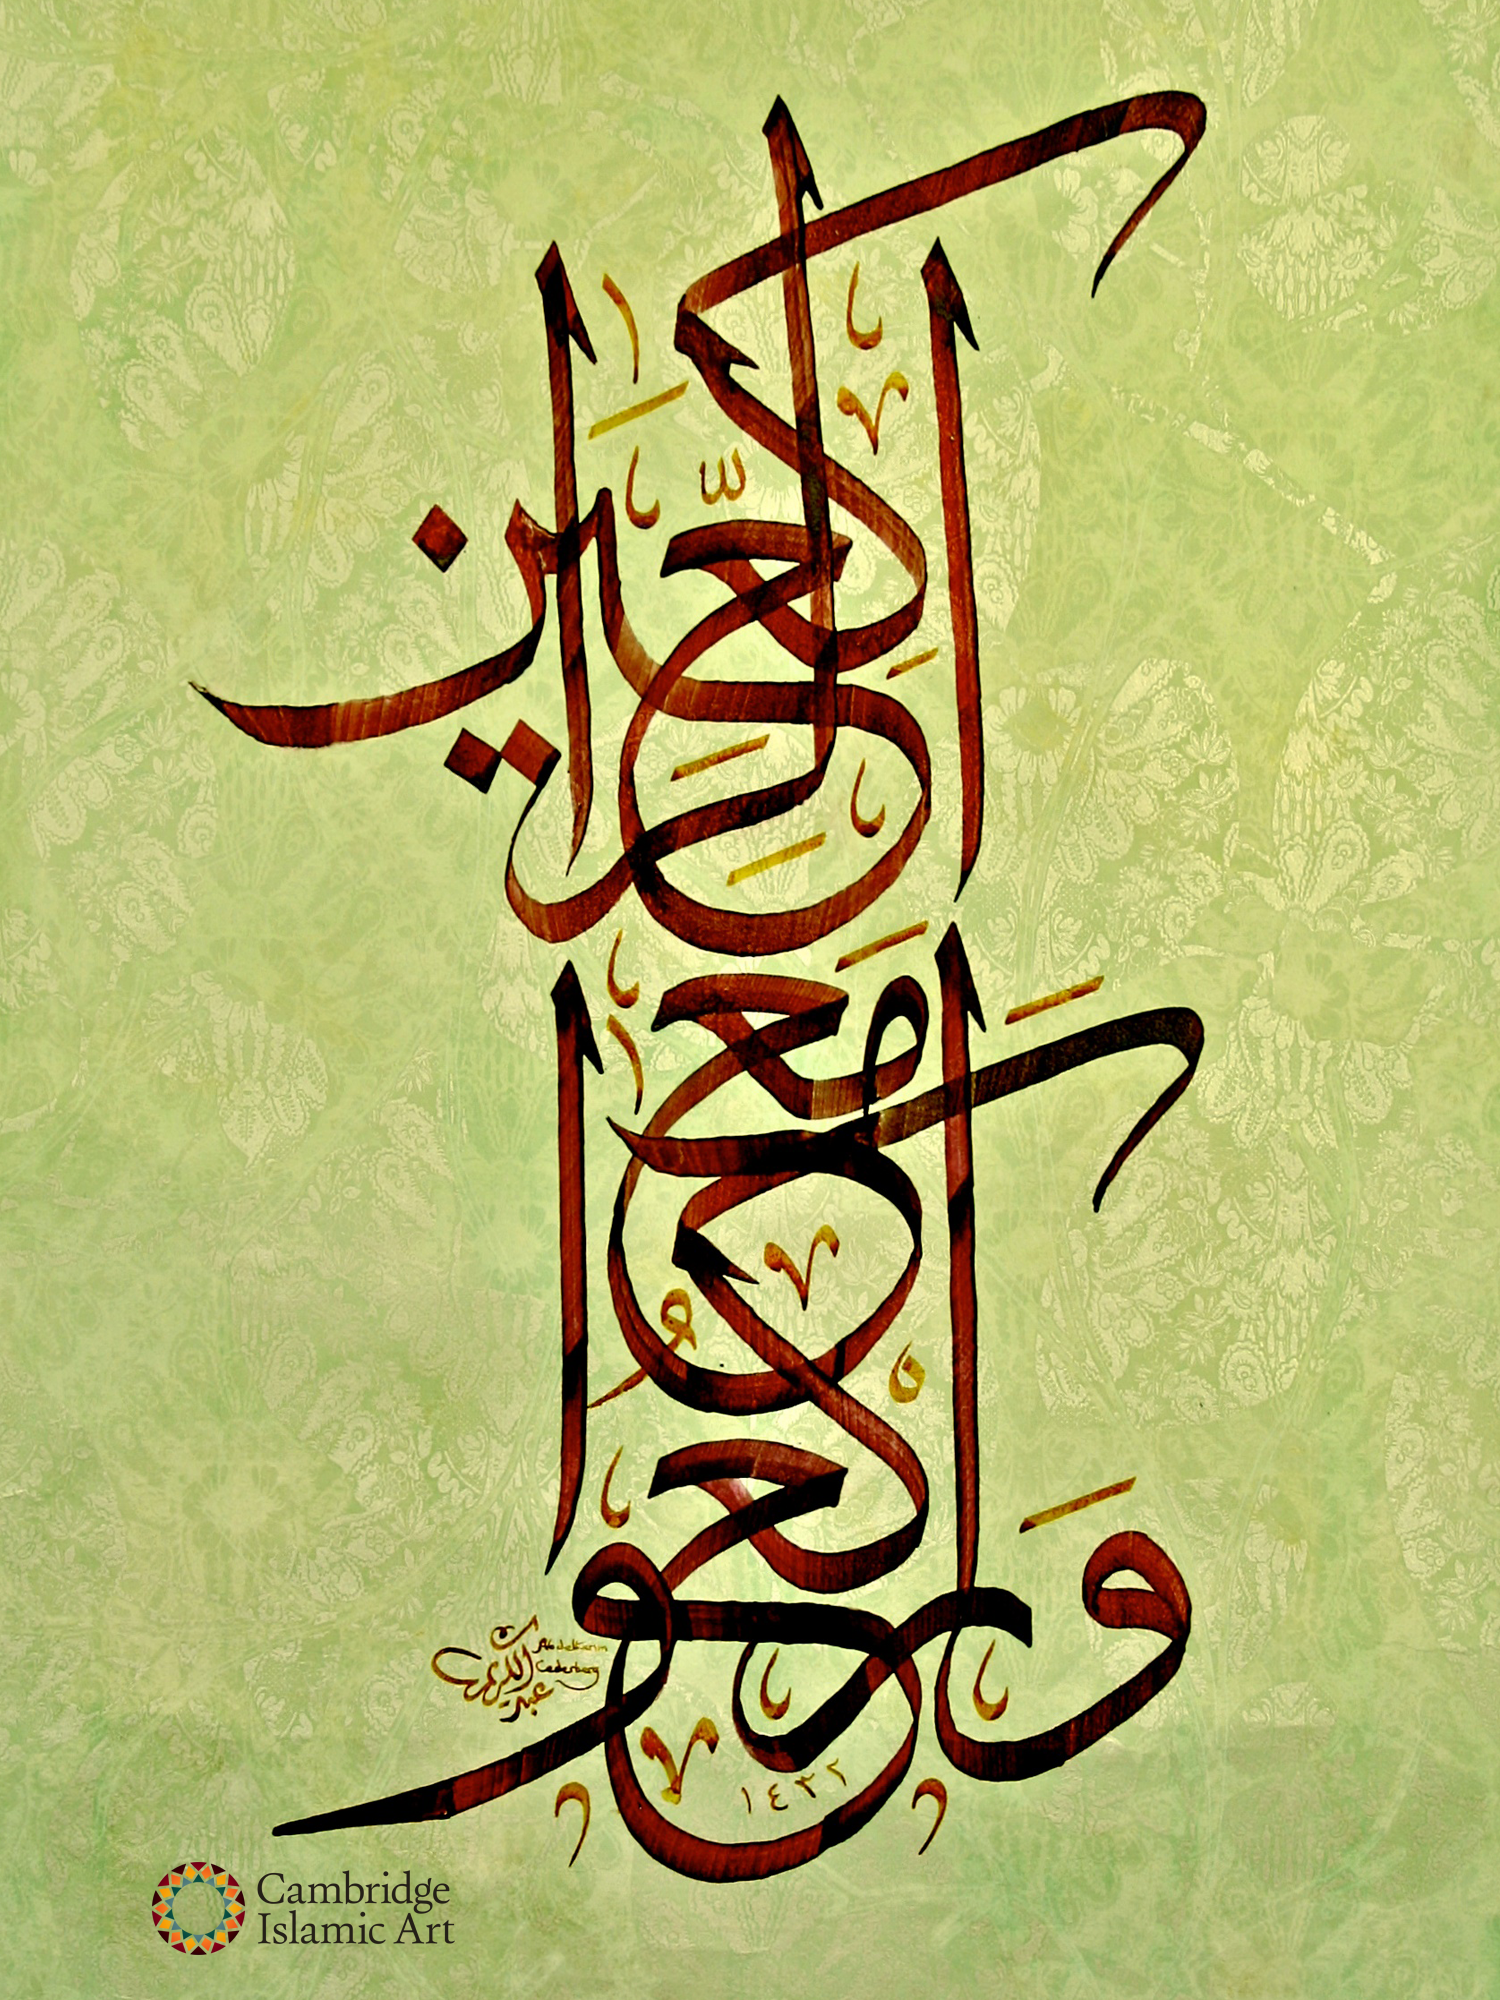 وَارْكَعُوا
مَعَ
الرَّاكِعِينَ
Abdelkarim
Cederberg
عبد الكريم
١٤٣٢
Cambridge
Islamic Art